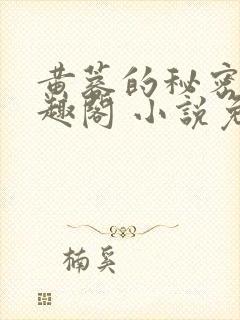 黄蓉的秘密
趣阁 小说免
楠奚